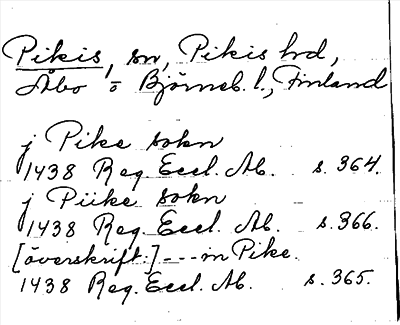 Pikis, sn, Pikis hrd,
Åbo o Björneb. l., Finland
j Pike sokn
1438 Reg. Eccl. Ab. s. 364.
j Piike sokn
1438 Reg. Eccl. Ab. s. 366.
[överskrift:] --- in Pike.
1438 Reg. Eccl. Ab. s. 365.